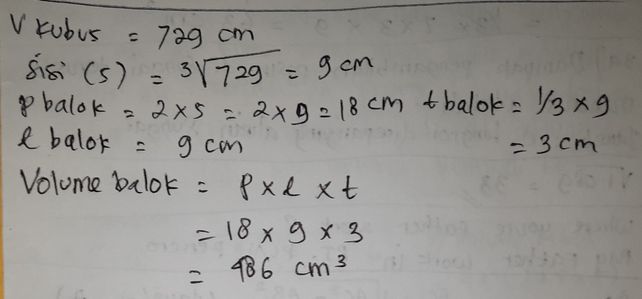 V kubus = 729 cm
sisi (s) = 3√729 = 9 cm
p balok = 2 x s = 2 x 9 = 18 cm t balok = 1/3 x 9
l balok = 9 cm = 3 cm
Volume balok = p x l x t
= 18 x 9 x 3
= 486 cm³